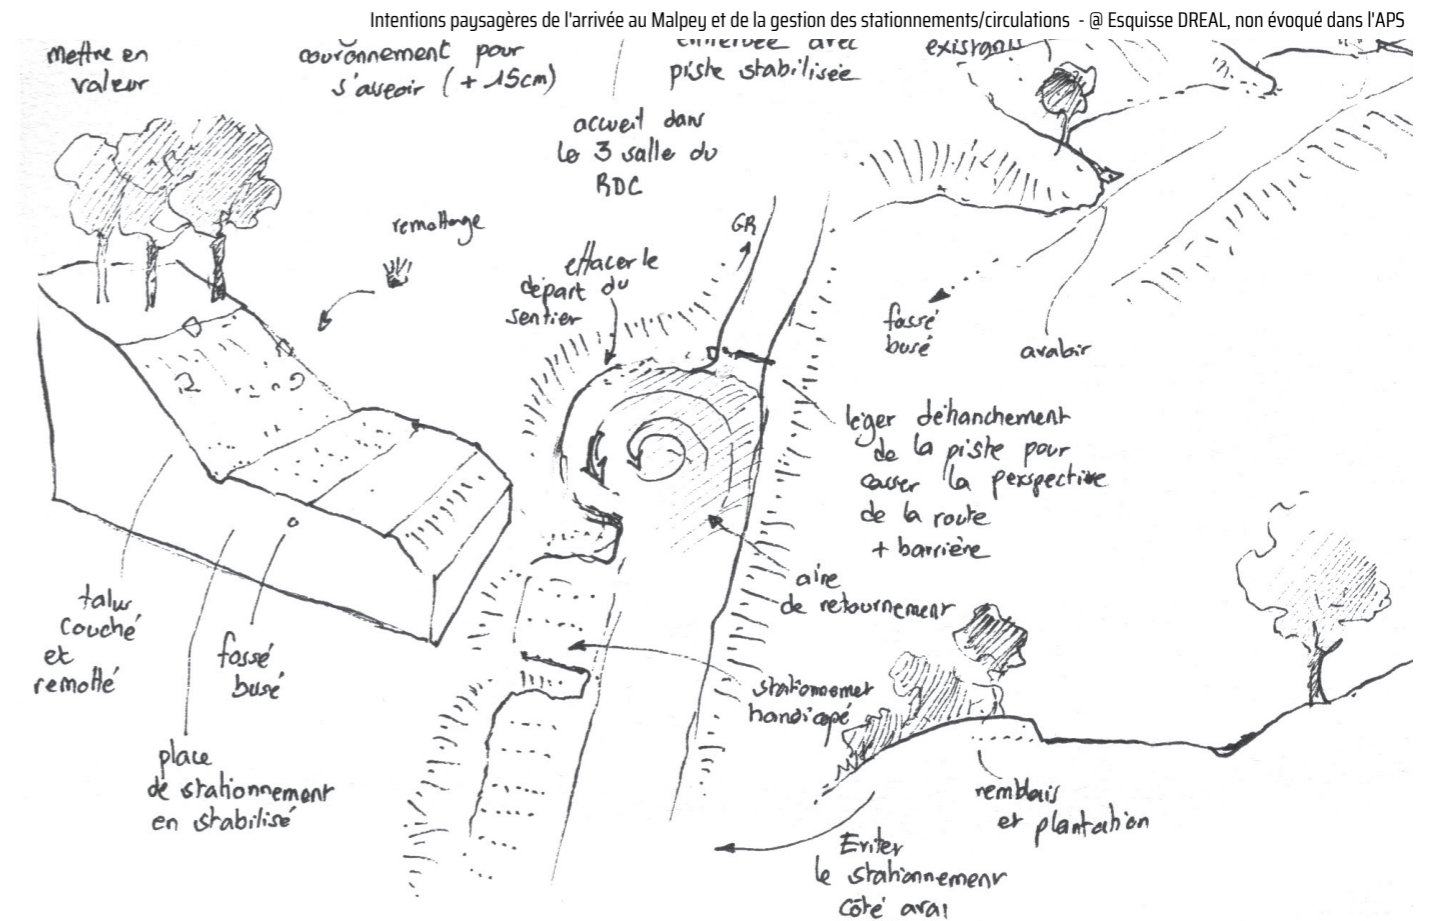 Intentions paysagères de l'arrivée au Malpey et de la gestion des stationnements/circulations - @ Esquisse DREAL, non évoqué dans l'APS
mettre en
valeur
couronnement pour
s'asseoir (+ 15cm)
enherbée avec
piste stabilisée
existants
accueil dans
le 3 salle du
RDC
remottage
GR
effacer le
départ du
sentier
fossé
busé
avaloir
léger déhanchement
de la piste pour
casser la perspective
de la route
+ barrière
aire
de retournement
talus
couché
et
remotté
fossé
busé
stationnemet
handicapé
place
de stationnement
en stabilisé
remblais
et plantation
Eviter
le stationnement
côté aval